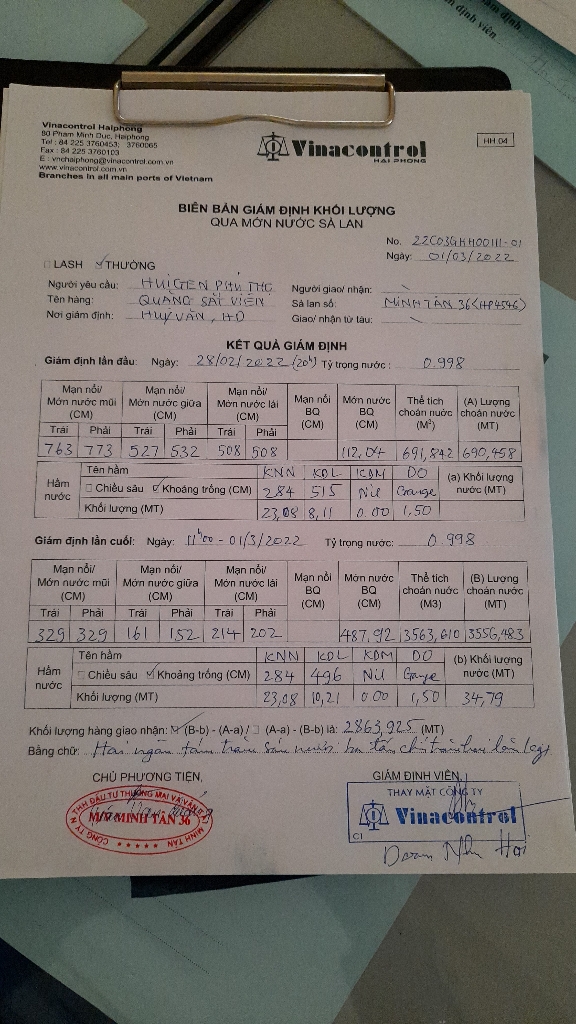 Vinacontrol Haiphong
80 Pham Minh Duc, Haiphong
Tel : 84 225 3760453; 3760065
Fax : 84 225 3760103
E : vnchaiphong@vinacontrol.com.vn
www.vinacontrol.com.vn
Branches in all main ports of Vietnam
Vinacontrol
HAI PHONG
HH 04
BIÊN BẢN GIÁM ĐỊNH KHỐI LƯỢNG
QUA MỚN NƯỚC SÀ LAN
No. 22C03GKH00111-01
Ngày: 01/03/2022
LASH THƯỜNG
Người yêu cầu: Người giao/ nhận:
Tên hàng: QUẶNG SẮT VIÊN Sà lan số: MINH TÂN 36 (HP4546)
Nơi giám định: HUY VĂN, HD Giao/ nhận từ tàu:
KẾT QUẢ GIÁM ĐỊNH
Giám định lần đầu: Ngày: 28/02/2022 (20h) Tỷ trọng nước: 0.998
Mạn nổi/ Mớn nước mũi (CM) Mạn nổi/ Mớn nước giữa (CM) Mạn nổi/ Mớn nước lái (CM) Mạn nổi BQ (CM) Mớn nước BQ (CM) Thể tích choán nước (M³) (A) Lượng choán nước (MT)
Trái Phải Trái Phải Trái Phải
763 773 527 532 508 508 112,04 691,842 690,458
Hầm nước Tên hầm KNN KDL KDM DO (a) Khối lượng nước (MT)
Chiều sâu Khoảng trống (CM) 284 515 Nil Gauge
Khối lượng (MT) 23,08 8,11 0.00 1,50
Giám định lần cuối: Ngày: 11h00 - 01/3/2022 Tỷ trọng nước: 0.998
Mạn nổi/ Mớn nước mũi (CM) Mạn nổi/ Mớn nước giữa (CM) Mạn nổi/ Mớn nước lái (CM) Mạn nổi BQ (CM) Mớn nước BQ (CM) Thể tích choán nước (M3) (B) Lượng choán nước (MT)
Trái Phải Trái Phải Trái Phải
329 329 161 152 214 202 487,92 3563,610 3556,483
Hầm nước Tên hầm KNN KDL KDM DO (b) Khối lượng nước (MT)
Chiều sâu Khoảng trống (CM) 284 496 Nil Gauge
Khối lượng (MT) 23,08 10,21 0.00 1,50 34,79
Khối lượng hàng giao nhận: (B-b) - (A-a) / (A-a) - (B-b) là: 2863,925 (MT)
Bằng chữ: Hai ngàn tám trăm sáu mươi ba tấn
CHỦ PHƯƠNG TIỆN, GIÁM ĐỊNH VIÊN,
M/V MINH TÂN 36
THAY MẶT CÔNG TY
Vinacontrol
C1